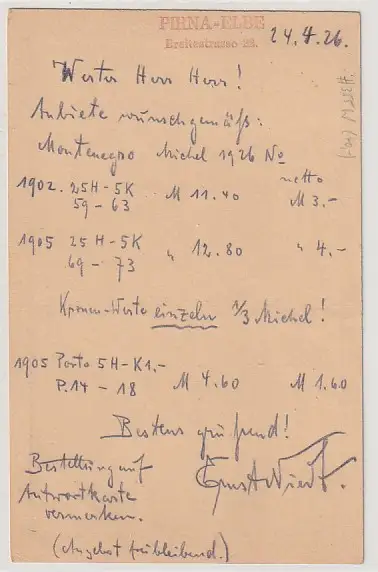 PIRNA-ELBE
Breitestrasse 28.
24.4.26.
Werter Herr Herr!
Anbiete wunschgemäß:
Montenegro Michel 1926 No
netto
1902. 25H-5K M 11.40 M 3.-
59-63
1905 25H-5K " 12.80 " 4.-
69-73
Kronen-Werte einzeln 1/3 Michel!
1905 Porto 5H-K1.-
P.14-18 M 4.60 M 1.60
Bestens grüßend!
Ernst
Bestellung auf
Antwortkarte
vermerken.
(Angebot freibleibend.)